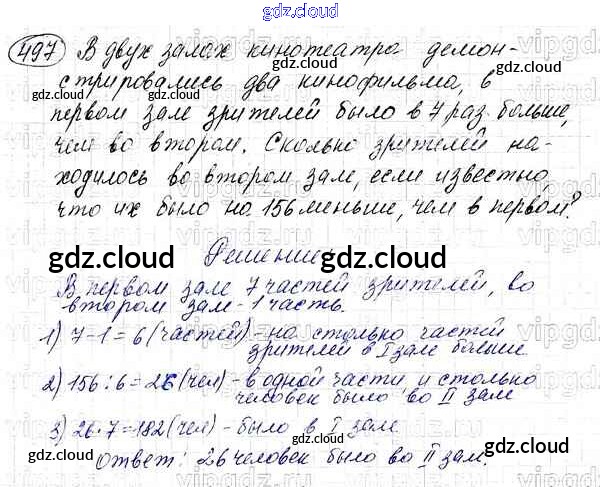 gdz.cloud
497 В двух залах кинотеатра демон-
стрировались два кинофильма, в
первом зале зрителей было в 7 раз больше,
чем во втором. Сколько зрителей на-
ходилось во втором зале, если известно
что их было на 156 меньше, чем в первом?
Решение
В первом зале 7 частей зрителей, во
втором зале - 1 часть.
1) 7-1=6 (частей) - на столько частей
зрителей в I зале больше
2) 156:6=26 (чел) - в одной части и столько
человек было во II зале
3) 26·7=182 (чел) - было в I зале
Ответ: 26 человек было во II зале.